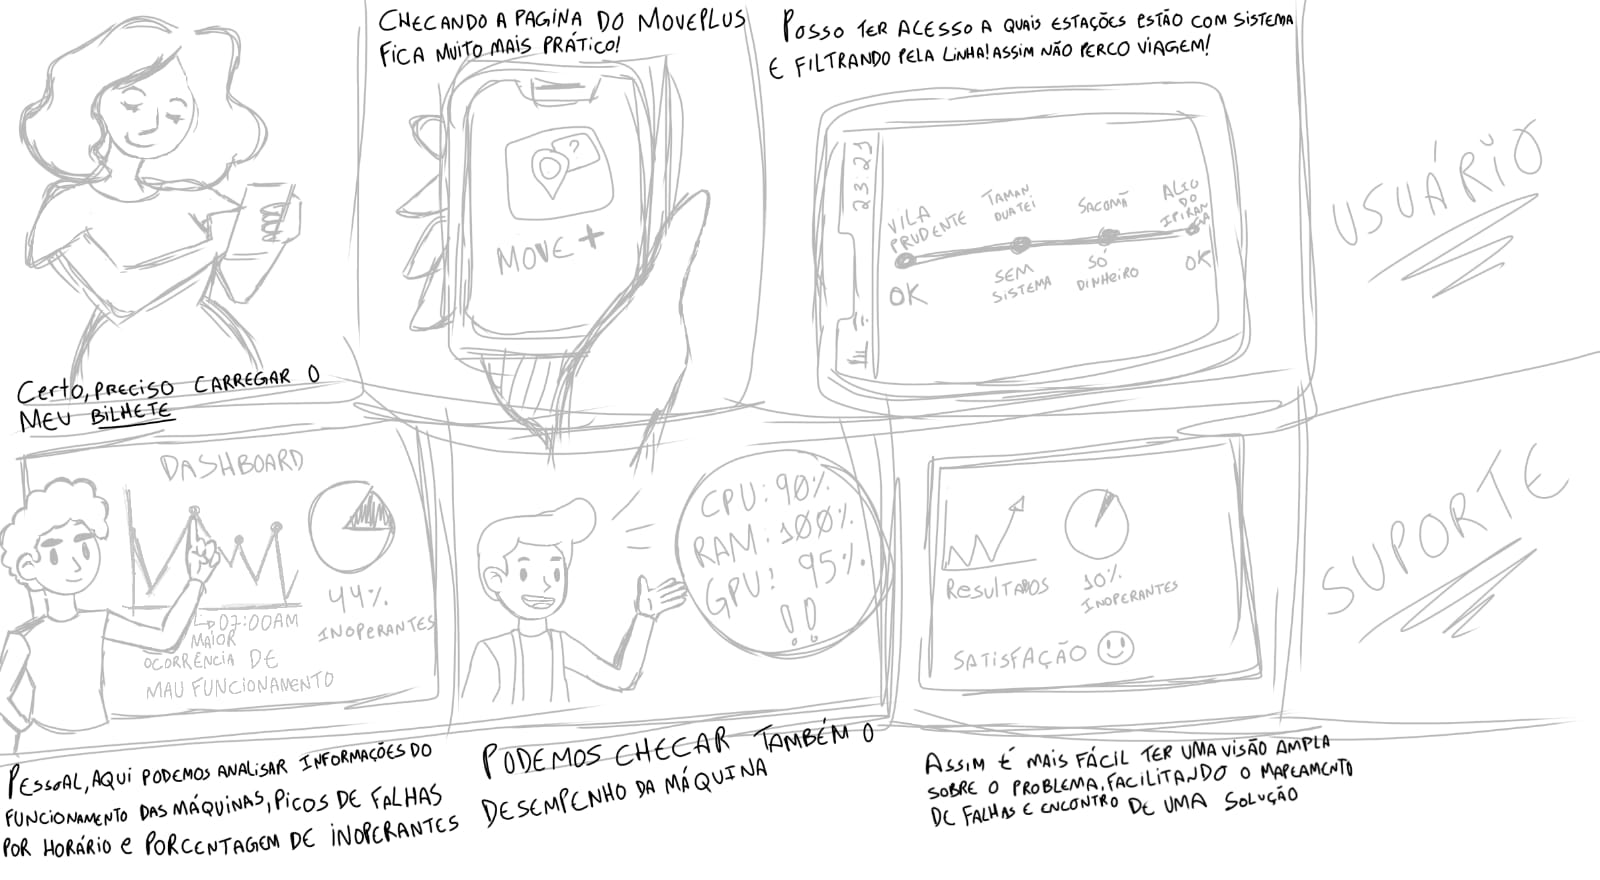 Certo, PRECISO CARREGAR O
MEU BILHETE
CHECANDO A PAGINA DO MOVEPLUS
FICA MUITO MAIS PRÁTICO!
?
MOVE +
POSSO TER ACESSO A QUAIS ESTAÇÕES ESTÃO COM SISTEMA
E FILTRANDO PELA LINHA! ASSIM NÃO PERCO VIAGEM!
23:21
VILA
PRUDENTE
OK
TAMAN
DUATEÍ
SEM
SISTEMA
SACOMÃ
SÓ
DINHEIRO
ALTO
DO
IPIRAN
GA
OK
USUÁRIO
DASHBOARD
44%
INOPERANTES
07:00AM
MAIOR
OCORRÊNCIA DE
MAU FUNCIONAMENTO
PESSOAL, AQUI PODEMOS ANALISAR INFORMAÇÕES DO
FUNCIONAMENTO DAS MÁQUINAS, PICOS DE FALHAS
POR HORÁRIO e PORCENTAGEM DE INOPERANTES
CPU: 90%
RAM: 100%
GPU: 95%
!!
PODEMOS CHECAR TAMBÉM O
DESEMPENHO DA MÁQUINA
RESULTADOS
10%
INOPERANTES
SATISFAÇÃO
ASSIM É MAIS FÁCIL TER UMA VISÃO AMPLA
SOBRE O PROBLEMA, FACILITANDO O MAPEAMENTO
DE FALHAS E ENCONTRO DE UMA SOLUÇÃO
SUPORTE